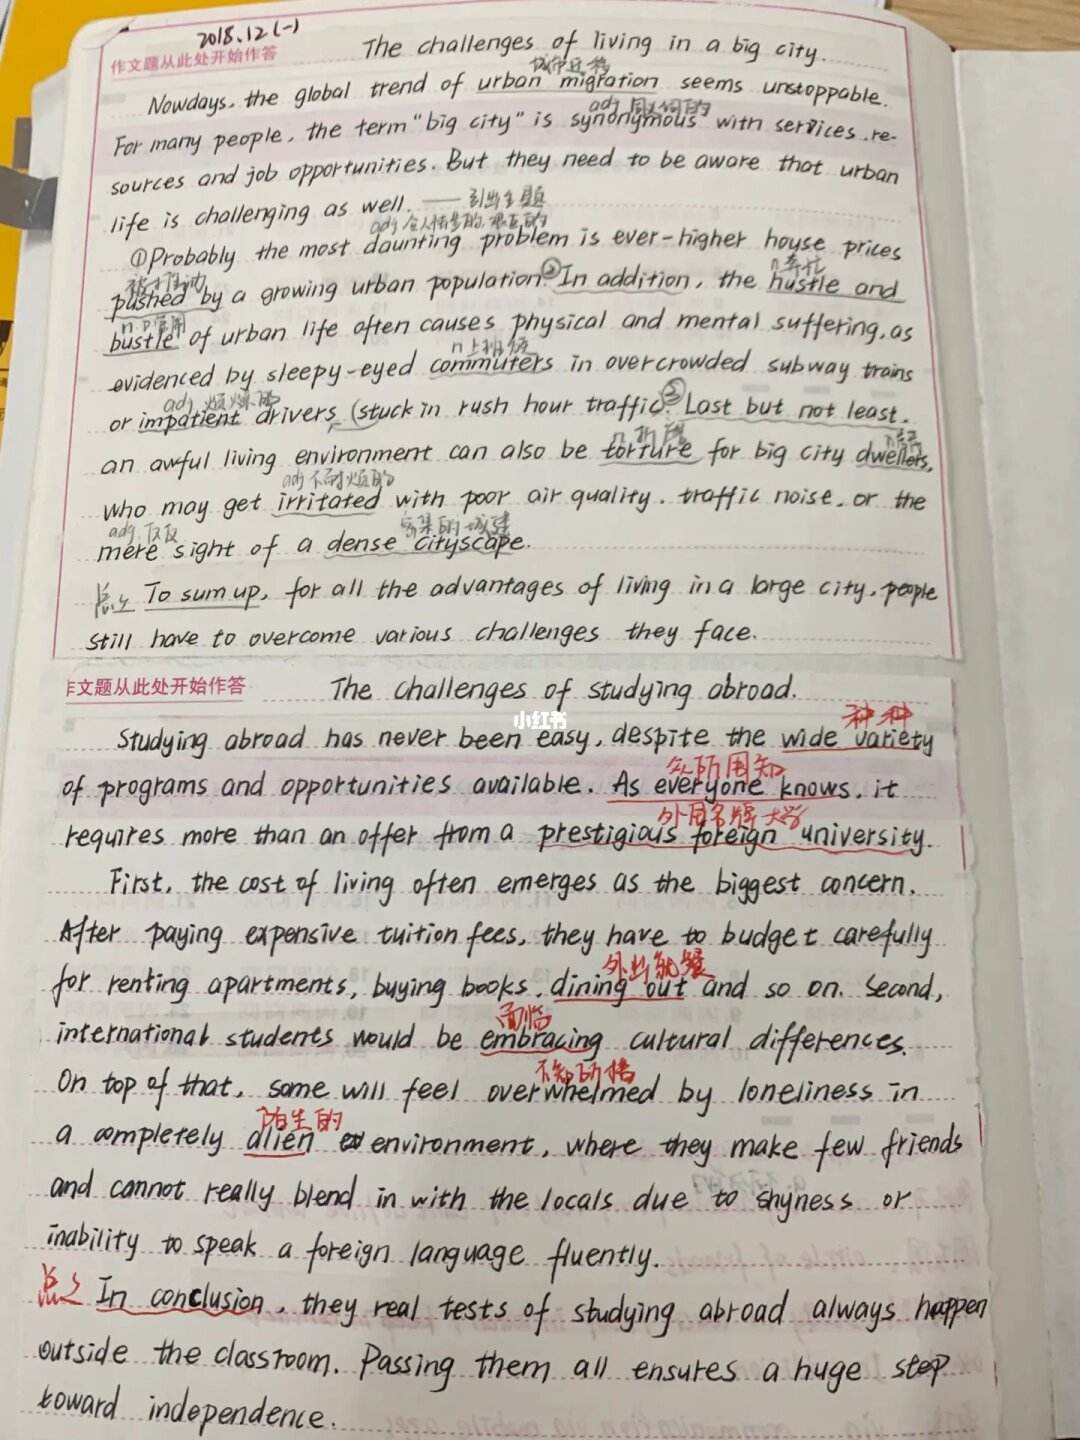 2018.12(一)
作文题从此处开始作答
The challenges of living in a big city.
城市迁移
Nowdays, the global trend of urban migration seems unstoppable.
adj 同义词的
For many people, the term "big city" is synonymous with services, re-
sources and job opportunities. But they need to be aware that urban
life is challenging as well. —— 引出主题
adj 令人怯步的,
①Probably the most daunting problem is ever-higher house prices
被 推动
n 奔忙
pushed by a growing urban population. ② In addition, the hustle and
bustle of urban life often causes physical and mental suffering, as
n 上班族
evidenced by sleepy-eyed commuters in overcrowded subway trains
adj 烦燥的
or impatient drivers (stuck in rush hour traffic. ③ Last but not least,
n 折磨
n 居民
an awful living environment can also be torture for big city dwellers,
adj 不耐烦的
who may get irritated with poor air quality, traffic noise, or the
adj. 仅仅
密集的城建
mere sight of a dense cityscape.
总之 To sum up, for all the advantages of living in a large city, people
still have to overcome various challenges they face.
作文题从此处开始作答
The challenges of studying abroad.
小红书
种种
Studying abroad has never been easy, despite the wide variety
众所周知
of programs and opportunities available. As everyone knows, it
外国名牌大学
requires more than an offer from a prestigious foreign university.
First, the cost of living often emerges as the biggest concern.
After paying expensive tuition fees, they have to budget carefully
外出就餐
for renting apartments, buying books, dining out and so on. Second,
面临
international students would be embracing cultural differences.
不知所措
On top of that, some will feel overwhelmed by loneliness in
陌生的
a completely alien environment, where they make few friends
and cannot really blend in with the locals due to shyness or
inability to speak a foreign language fluently.
总之 In conclusion, they real tests of studying abroad always happen
outside the classroom. Passing them all ensures a huge step
toward independence.